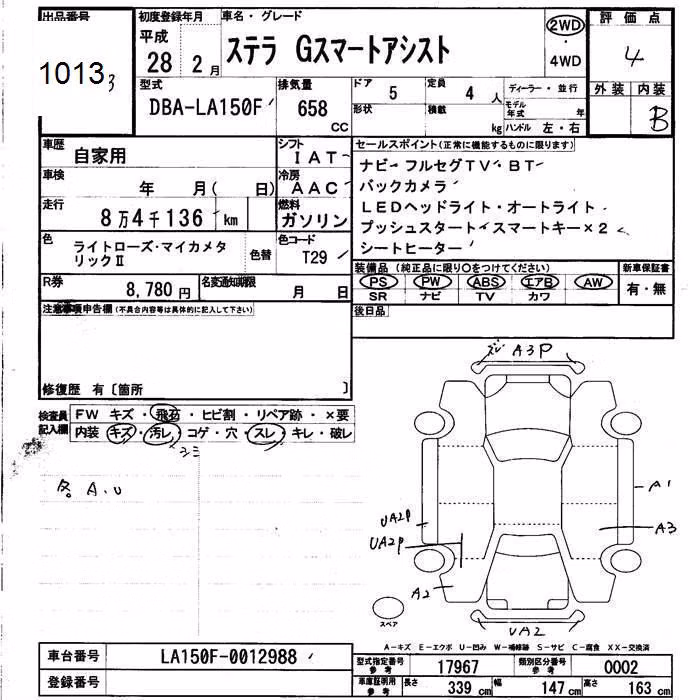 出品番号
1013 3
初度登録年月
平成
28 2月
車名・グレード
ステラ Gスマートアシスト
2WD
・
4WD
評価点
4
外装 内装
B
型式
DBA-LA150F
排気量
658
CC
ドア 5
定員 4 人
形状
積載 kg
ディーラー・並行
モデル年式 年
ハンドル 左・右
車歴 自家用
シフト IAT
車検 年 月( 日)
冷房 AAC
走行 8万4千136 km
燃料 ガソリン
色 ライトローズ・マイカメタ
リックⅡ
色替
色コード T29
R券 8,780円
名変通知期限 月 日
セールスポイント(正常に機能するものに限ります)
ナビ・フルセグTV・BT
バックカメラ
LEDヘッドライト・オートライト
プッシュスタート・スマートキー×2
シートヒーター
装備品(純正品に限り○をつけてください)
PS PW ABS エアB AW
SR ナビ TV カワ
新車保証書
有・無
後日品
注意事項申告欄(不具合内容等は具体的に記入して下さい)
修復歴 有〔箇所 〕
検査員
記入欄
FW キズ・飛石・ヒビ割・リペア跡・×要
内装 キズ・汚レ・コゲ・穴・スレ・キレ・破レ
シミ
各A.U
ズレ A3P
A1
A3
UA2P
UA2P
A2
UA2
スペア
A-キズ E-エクボ U-凹み W-補修跡 S-サビ C-腐食 XX-交換済
車台番号 LA150F-0012988
登録番号
型式指定番号
参考
17967
類別区分番号
参考
0002
車庫証明用
参考
長さ 339 cm 幅 147 cm 高さ 163 cm